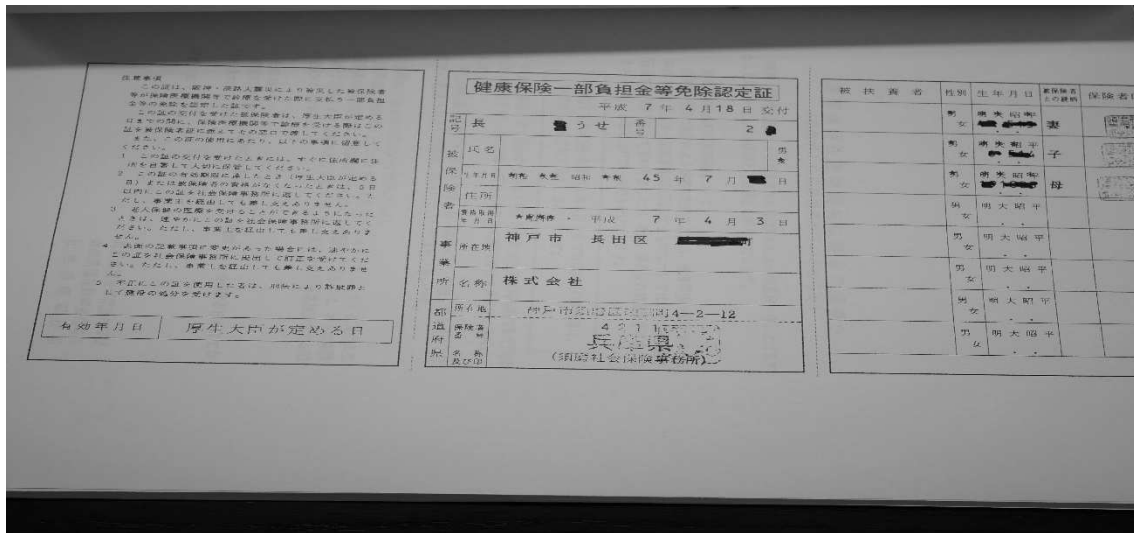 注意事項
この証は、阪神・淡路大震災により被災した被保険者
等が保険医療機関等で診療を受けた際に支払う一部負担
金等の免除を認定した証です。
この証の交付を受けた被保険者は、厚生大臣が定める
日までの間に、保険医療機関等で診療を受ける際はこの
証を被保険者証に添えてその窓口で渡してください。
また、この証の使用にあたり、以下の事項に留意して
ください。
1 この証の交付を受けたときには、すぐに住所欄に住
所を自署して大切に保管してください。
2 この証の有効期限に達したとき(厚生大臣が定める
日)または被保険者の資格がなくなったときは、5日
以内にこの証を社会保険事務所に返してください。た
だし、事業主を経由しても差し支えありません。
3 老人保健の医療を受けることができるようになった
ときは、速やかにこの証を社会保険事務所に返してく
ださい。ただし、事業主を経由しても差し支えありま
せん。
4 表面の記載事項に変更があった場合には、速やかに
この証を社会保険事務所に提出して訂正を受けてくだ
さい。ただし、事業主を経由しても差し支えありませ
ん。
5 不正にこの証を使用した者は、刑法により詐欺罪と
して懲役の処分を受けます。
有効年月日 厚生大臣が定める日
健康保険一部負担金等免除認定証
平成 7 年 4 月 18 日 交付
記号 長 うせ 番号 2
被保険者
氏名 男 女
生年月日 昭和 45 年 7 月 日
住所
資格取得年月日 平成 7 年 4 月 3 日
事業所
所在地 神戸市 長田区 町
名称 株式会社
都道府県
所在地 神戸市 町4-2-12
保険者番号
名称及び印 兵庫県
(須磨社会保険事務所)
被扶養者 性別 生年月日 被保険者との続柄
男 女 明 大 昭 平 妻
男 女 明 大 昭 平 子
男 女 明 大 昭 平 母
男 女 明 大 昭 平
男 女 明 大 昭 平
男 女 明 大 昭 平
男 女 明 大 昭 平
男 女 明 大 昭 平